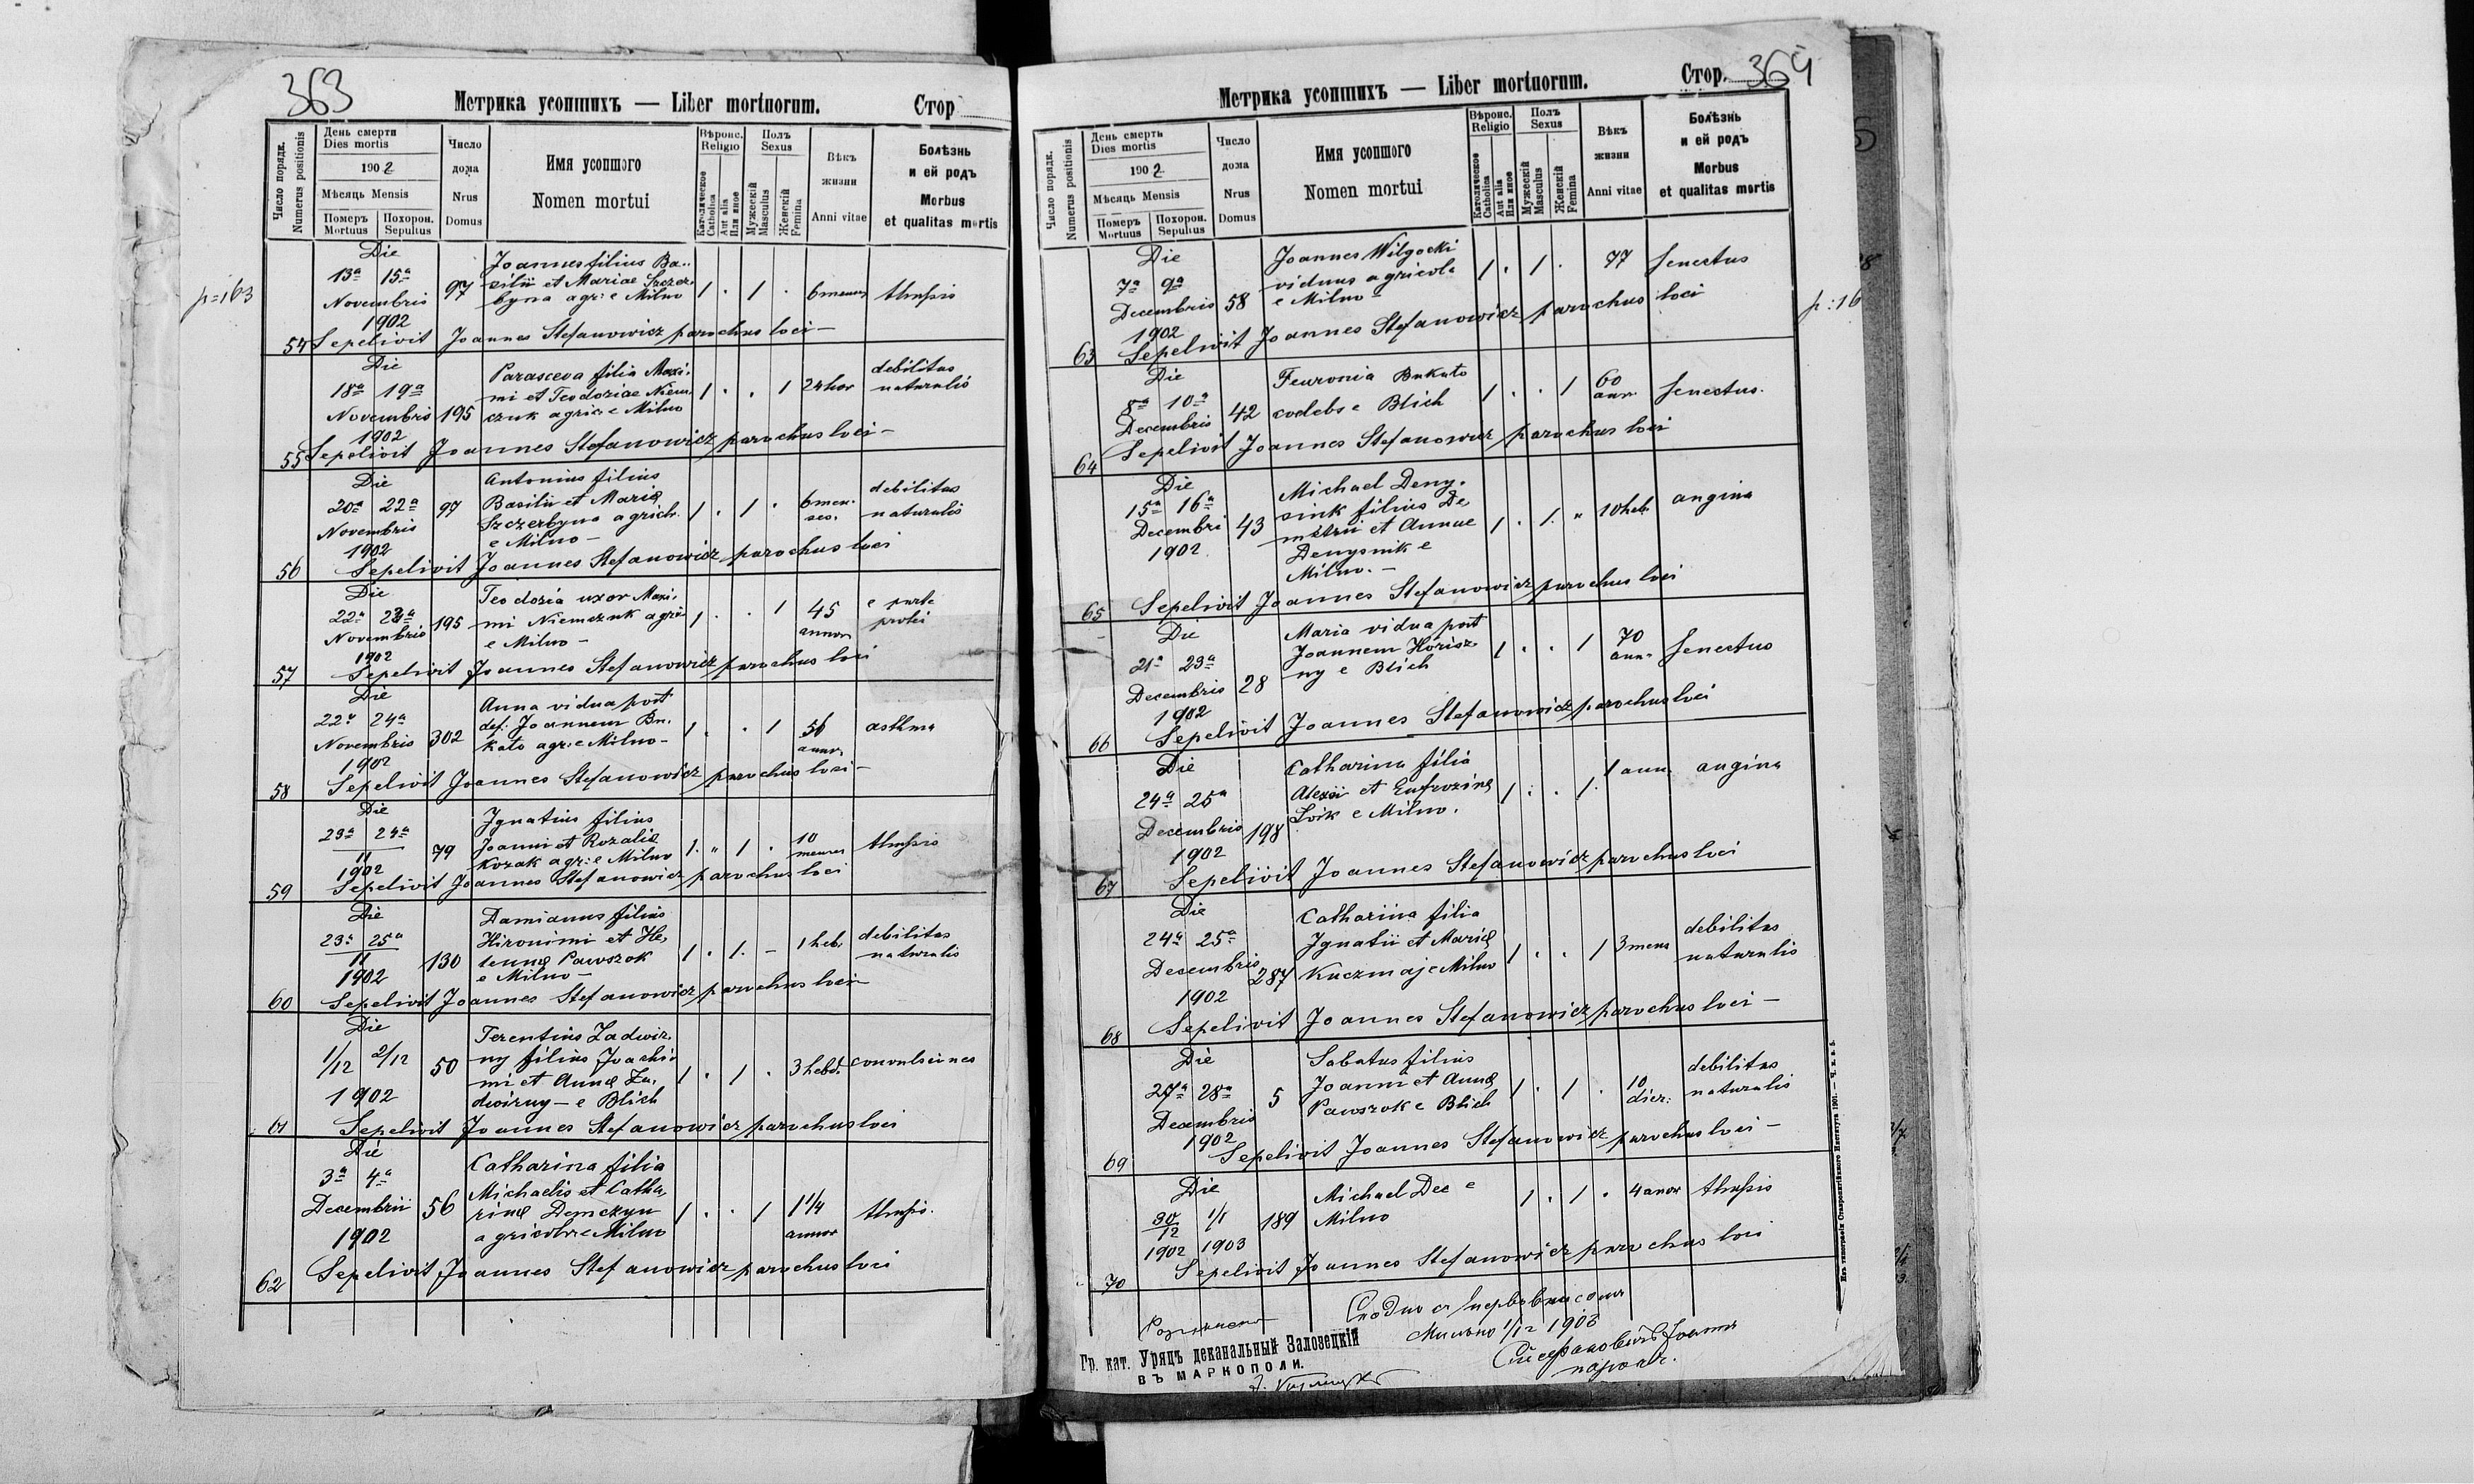 363
Метрика усопшихъ — Liber mortuorum.
Стор
Число порядк.
Numerus positionis
День смерти
Dies mortis
1902
Мѣсяць Mensis
Померъ
Mortuus
Похорон.
Sepultus
Число
дома
Nrus
Domus
Имя усопшого
Nomen mortui
Вѣроис.
Religio
Католическое
Catholica
Aut alia
Или иное
Полъ
Sexus
Мужескій
Masculus
Женскій
Femina
Вѣкъ
жизни
Anni vitae
Болѣзнь
и ей родъ
Morbus
et qualitas mortis
p=163
Die
13a 15a
Novembris
1902
97
Joannes filius Ba-
silii et Mariae Szczer-
byna agr: e Milno
1 . 1 .
6 menses
thussis
54 Sepelivit Joannes Stefanowicz parochus loci —
Die
18a 19a
Novembris
1902
195
Parasceva filia Maxi-
mi et Teodoziae Niem-
czuk agric: e Milno
1 . . 1
24 hor
debilitas
naturalis
55 Sepelivit Joannes Stefanowicz parochus loci —
Die
20a 22a
Novembris
1902
97
Antonius filius
Basilii et Mariae
Szczerbyna agrich.
e Milno —
1 . 1 .
6 men-
ses.
debilitas
naturalis
56 Sepelivit Joannes Stefanowicz parochus loci
Die
22a 23a
Novembris
1902
195
Teodozia uxor Maxi-
mi Niemczuk agri:
e Milno —
1 . . 1
45
annor
e parte
57 Sepelivit Joannes Stefanowicz parochus loci
Die
22a 24a
Novembris
1902
302
Anna vidua post
def. Joannem Bu-
kato agr: e Milno —
1 . . 1
56
annor.
asthma
58 Sepelivit Joannes Stefanowicz parochus loci —
Die
23a 24a
11
1902
79
Ignatius filius
Joanni et Rozaliae
Kozak agr: e Milno
1 . " 1 .
10
menses
thussis
59 Sepelivit Joannes Stefanowicz parochus loci
Die
23a 25a
11
1902
130
Damianus filius
Hironimi et He-
lennae Pawszok
e Milno —
1 . 1 . —
1 heb.
debilitas
naturalis
60 Sepelivit Joannes Stefanowicz parochus loci —
Die
1/12 2/12
1902
50
Terentius Zadwir-
ny filius Joachi-
mi et Annae Za-
dwirny — e Blich
1 . 1 .
3 hebd.
convulsiones
61 Sepelivit Joannes Stefanowicz parochus loci
Die
3a 4a
Decembrii
1902
56
Catharina filia
Michaelis et Catha-
rinae Demczyn
agricolae e Milno
1 . . 1
1 1/4
annor
thussis.
62 Sepelivit Joannes Stefanowicz parochus loci
364
Метрика усопшихъ — Liber mortuorum.
Стор.
Число порядк.
Numerus positionis
День смерти
Dies mortis
1902
Мѣсяць Mensis
Померъ
Mortuus
Похорон.
Sepultus
Число
дома
Nrus
Domus
Имя усопшого
Nomen mortui
Вѣроис.
Religio
Католическое
Catholica
Aut alia
Или иное
Полъ
Sexus
Мужескій
Masculus
Женскій
Femina
Вѣкъ
жизни
Anni vitae
Болѣзнь
и ей родъ
Morbus
et qualitas mortis
p: 16
Die
7a 9a
Decembris
1902
58
Joannes Wilgocki
viduus agricola
e Milno —
1 . 1 .
77
Senectus
63 Sepelivit Joannes Stefanowicz parochus loci
Die
8a 10a
Decembris
42
Feuronia Bukato
coelebs e Blich
1 . . 1
60
ann.
Senectus.
64 Sepelivit Joannes Stefanowicz parochus loci
Die
15a 16a
Decembri
1902
43
Michael Deny-
siuk filius De-
metrii et Annae
Denysiuk e
Milno. —
1 . 1 . "
10 heb.
angina
65 Sepelivit Joannes Stefanowicz parochus loci
Die
21a 23a
Decembris
1902
28
Maria vidua post
Joannem Horisz-
ny e Blich
1 . . 1
70
ann.
Senectus
66 Sepelivit Joannes Stefanowicz parochus loci
Die
24a 25a
Decembris
1902
198
Catharina filia
Alexii et Eufrozinae
e Milno.
1 . . 1
1 ann.
angina
67 Sepelivit Joannes Stefanowicz parochus loci
Die
24a 25a
Decembris
1902
287
Catharina filia
Ignatii et Mariae
Kuczmaj e Milno
1 . . 1
3 mens
debilitas
naturalis
68 Sepelivit Joannes Stefanowicz parochus loci —
Die
27a 28a
Decembris
1902
5
Sabatus filius
Joanni et Annae
Pawszok e Blich
1 . 1 .
10
dier:
debilitas
naturalis
69 Sepelivit Joannes Stefanowicz parochus loci —
Die
30/12 1/1
1902 1903
189
Michael Dec e
Milno
1 . 1 .
4 anor
thussis
70 Sepelivit Joannes Stefanowicz parochus loci
Мильно 1/12 1903
Стефановичъ Іоаннъ
парохъ.
Гр. кат. Урядъ деканальный Залозецкій
ВЪ МАРКОПОЛИ.
Изъ типографіи Ставропигійского Института 1901. — Ч. в. в. 5.